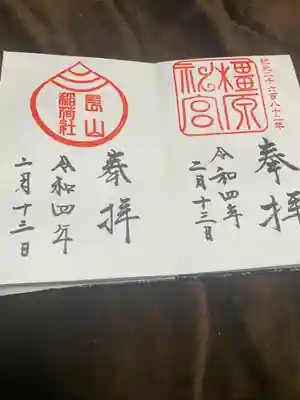 紀元二千六百八十二年
橿原
神宮
奉拝
令和四年
二月十三日
長山
稲荷社
奉拝
令和四年
二月十三日